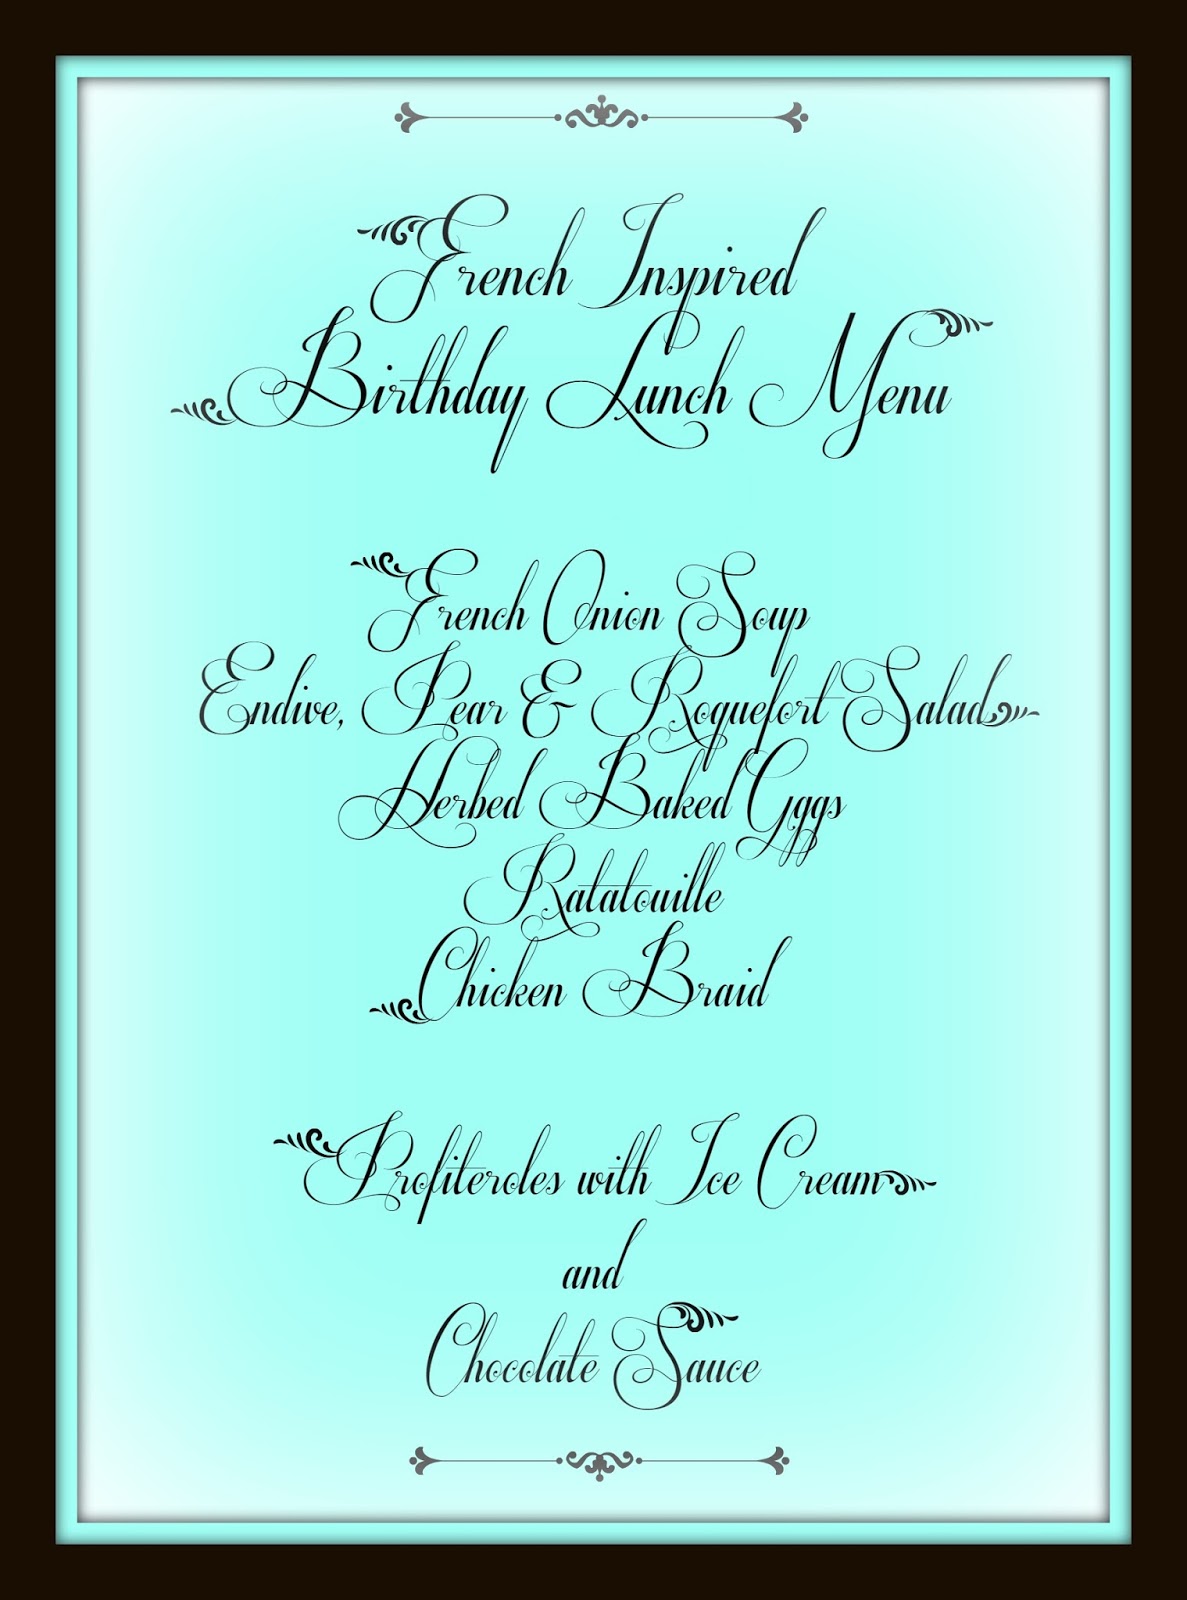 French Inspired
Birthday Lunch Menu
French Onion Soup
Endive, Pear & Roquefort Salad
Herbed Baked Gggs
Ratatouille
Chicken Braid
Profiteroles with Ice Cream
and
Chocolate Sauce